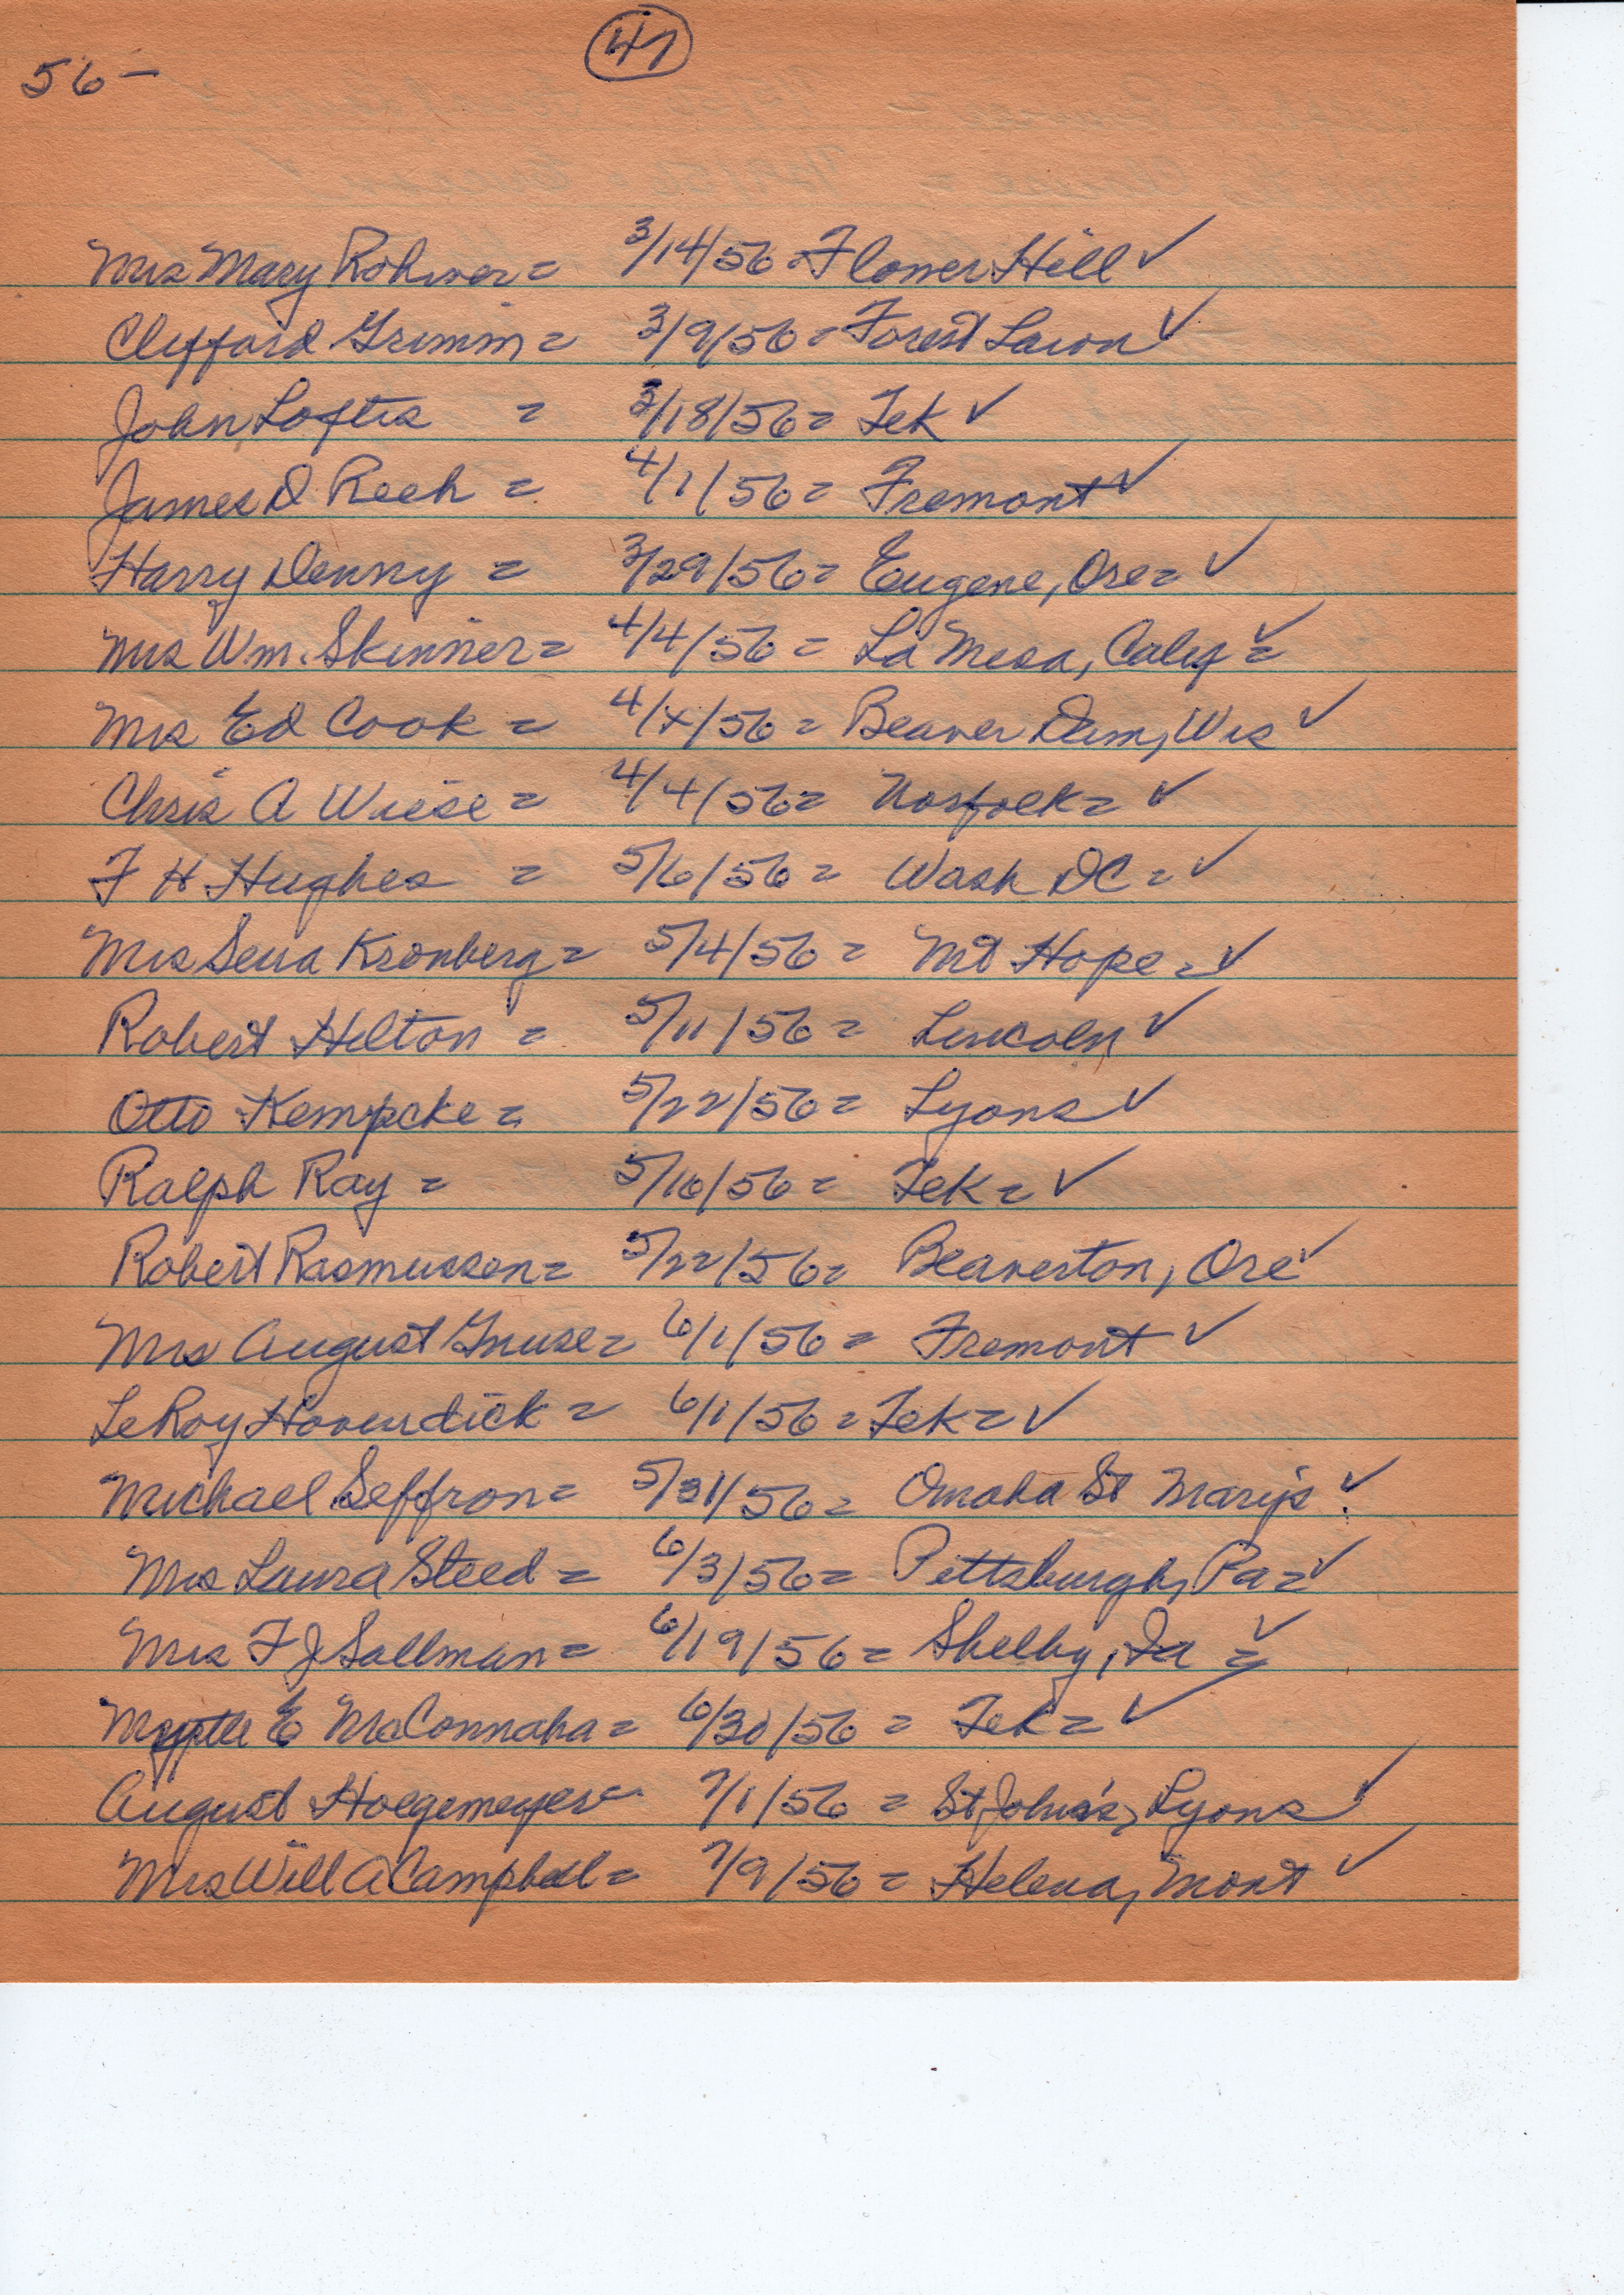 56 –
47
Mrs Mary Rohwer = 3/14/56 = Flower Hill ✓
Clifford Grimm = 3/9/56 = Forest Lawn ✓
John Loftis = 3/18/56 = Tek ✓
James D Reeh = 4/1/56 = Fremont ✓
Harry Denny = 3/29/56 = Eugene, Ore = ✓
Mrs Wm. Skinner = 4/4/56 = La Mesa, Calif = ✓
Mrs Ed Cook = 4/4/56 = Beaver Dam, Wis ✓
Chris A Wiese = 4/4/56 = Norfolk = ✓
F H Hughes = 5/6/56 = Wash DC = ✓
Mrs Sena Kronberg = 5/4/56 = Mt Hope = ✓
Robert Hilton = 5/11/56 = Lincoln ✓
Otto Kempcke = 5/22/56 = Lyons ✓
Ralph Ray = 5/16/56 = Tek = ✓
Robert Rasmussen = 5/22/56 = Beaverton, Ore ✓
Mrs August Gnuse = 6/1/56 = Fremont ✓
LeRoy Hovendick = 6/1/56 = Tek = ✓
Michael Seffron = 5/31/56 = Omaha St Mary's ✓
Mrs Laura Steed = 6/3/56 = Pittsburgh, Pa = ✓
Mrs F J Sallman = 6/19/56 = Shelby, Ia = ✓
E McConnaha = 6/30/56 = Tek = ✓
August Hoegemeyer = 7/1/56 = St John's, Lyons ✓
Mrs Will A Campbell = 7/9/56 = Helena, Mont ✓